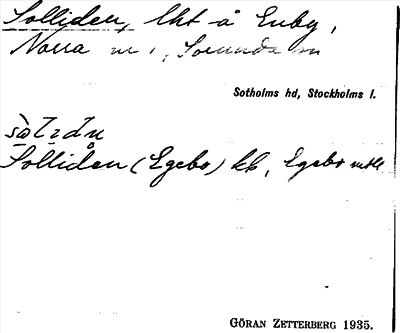 Solliden, lht å Enby,
Norra nr 1, Sorunda sn
Sotholms hd, Stockholms l.
Solliden (Egebo) kk, Egebo
GÖRAN ZETTERBERG 1935.